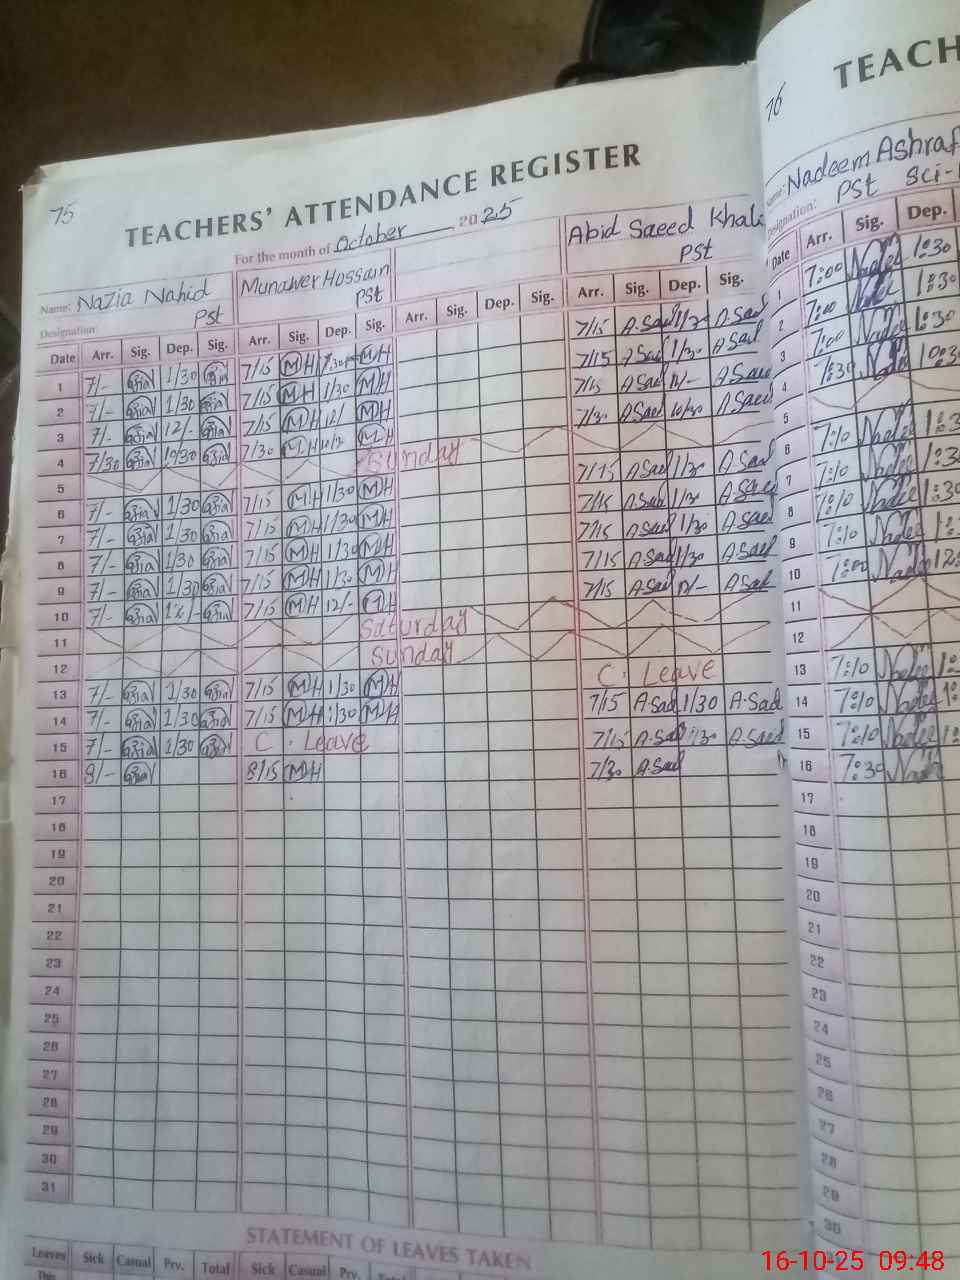 75
TEACHERS' ATTENDANCE REGISTER
For the month of October 2025
Name: Nazia Nahid Munawer Hossain Abid Saeed
Designation: Pst Pst Pst
Date Arr. Sig. Dep. Sig. Arr. Sig. Dep. Sig. Arr. Sig. Dep. Sig. Arr. Sig. Dep. Sig.
1 7/- 1/30 7/15 MH 1/30 MH 7/15 A.Saed 1/30 A.Saed
2 7/- 1/30 7/15 MH 1/30 MH 7/15 A.Saed 1/30 A.Saed
3 7/- 12/- 7/15 MH 12/- MH 7/15 A.Saed 12/- A.Saed
4 7/30 10/30 7/30 MH MH 7/30 A.Saed 10/30 A.Saed
5 Sunday
6 7/- 1/30 7/15 MH 1/30 MH 7/15 A.Saed 1/30 A.Saed
7 7/- 1/30 7/15 MH 1/30 MH 7/15 A.Saed 1/30 A.Saed
8 7/- 1/30 7/15 MH 1/30 MH 7/15 A.Saed 1/30 A.Saed
9 7/- 1/30 7/15 MH 1/30 MH 7/15 A.Saed 1/30 A.Saed
10 7/- 12/- 7/15 MH 12/- MH 7/15 A.Saed 12/- A.Saed
11 Saturday
12 Sunday
13 7/- 1/30 7/15 MH 1/30 MH C. Leave
14 7/- 1/30 7/15 MH 1/30 MH 7/15 A.Sad 1/30 A.Sad
15 7/- 1/30 C. Leave 7/15 A.Sad 1/30 A.Saed
16 8/- 8/15 MH 7/30 A.Sad
17
18
19
20
21
22
23
24
25
26
27
28
29
30
31
STATEMENT OF LEAVES TAKEN
Leaves Sick Casual Prv. Total Sick Casual Prv.
76
TEACH
Name: Nadeem Ashraf
Designation: PST Sci-
Date Arr. Sig. Dep.
1 7:00 1:30
2 7:00 1:30
3 7:00
4 7:30
5
6 7:10
7 7:10
8 7:10
9 7:10
10 7:00
11
12
13 7:10
14 7:10
15 7:10
16 7:30
17
18
19
20
21
22
23
24
25
26
27
28
29
30
16-10-25 09:48